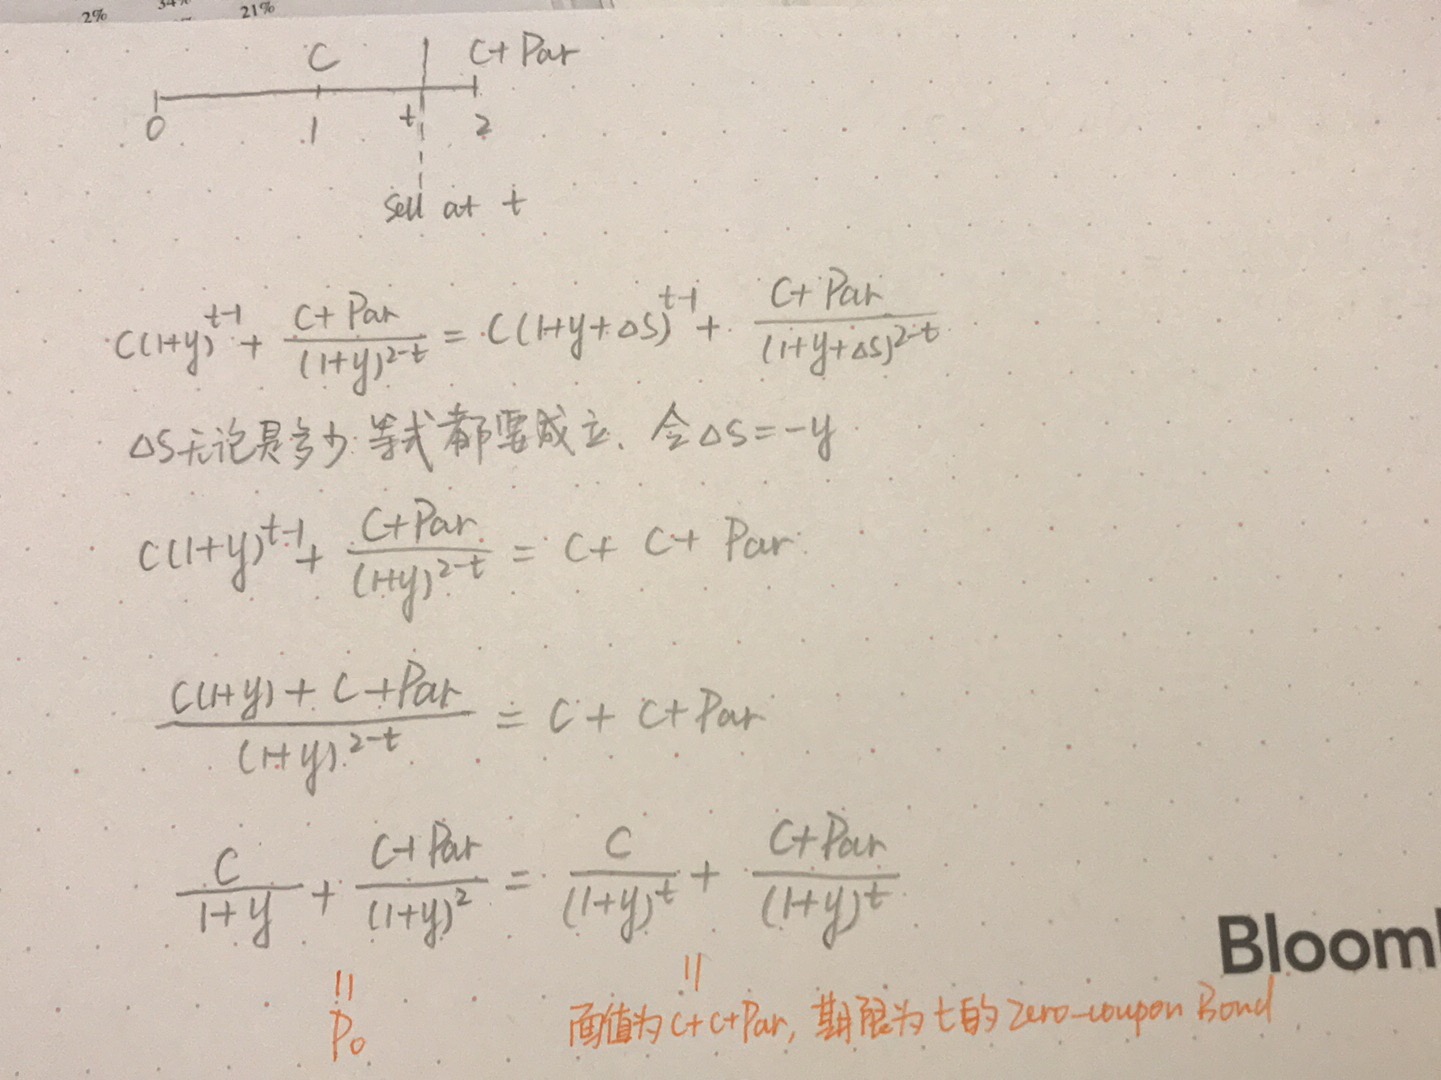 2% 34% 21%
C C+Par
0 1 t 2
sell at t
C(1+y)^{t-1} + \frac{C+Par}{(1+y)^{2-t}} = C(1+y+ΔS)^{t-1} + \frac{C+Par}{(1+y+ΔS)^{2-t}}
ΔS无论是多少,等式都要成立、令ΔS=-y
C(1+y)^{t-1} + \frac{C+Par}{(1+y)^{2-t}} = C+ C+ Par
\frac{C(1+y)+C+Par}{(1+y)^{2-t}} = C+ C+Par
\frac{C}{1+y} + \frac{C+Par}{(1+y)^2} = \frac{C}{(1+y)^t} + \frac{C+Par}{(1+y)^t}
|| ||
P₀ 面值为C+C+Par, 期限为t的Zero-coupon Bond
Bloom